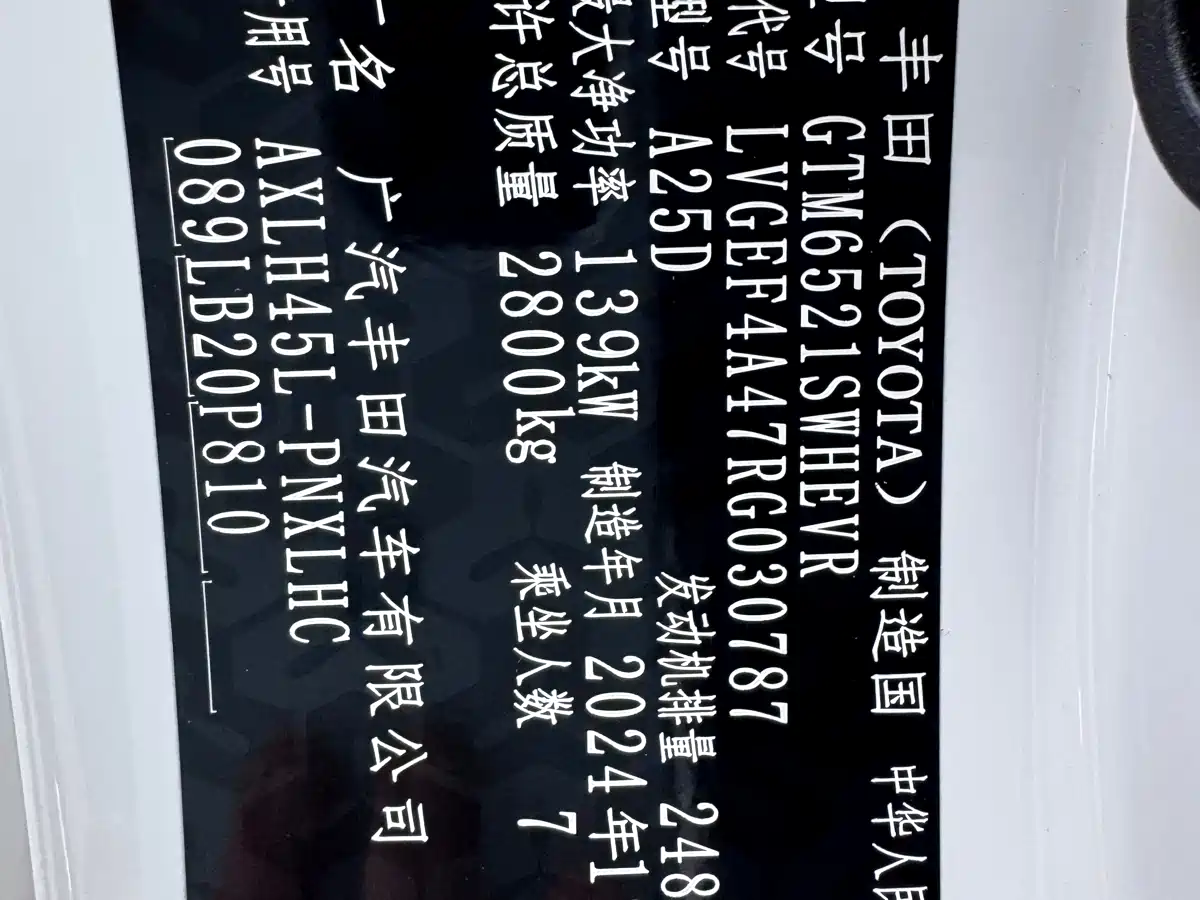 丰田 (TOYOTA) 制造国 中华人民
型号 GTM6521SWHEVR
代号 LVGEF4A47RG030787
型号 A25D 发动机排量 248
最大净功率 139kW 制造年月 2024年1
许总质量 2800kg 乘坐人数 7
名 广汽丰田汽车有限公司
用号 AXLH45L-PNXLHC
089LB20P810